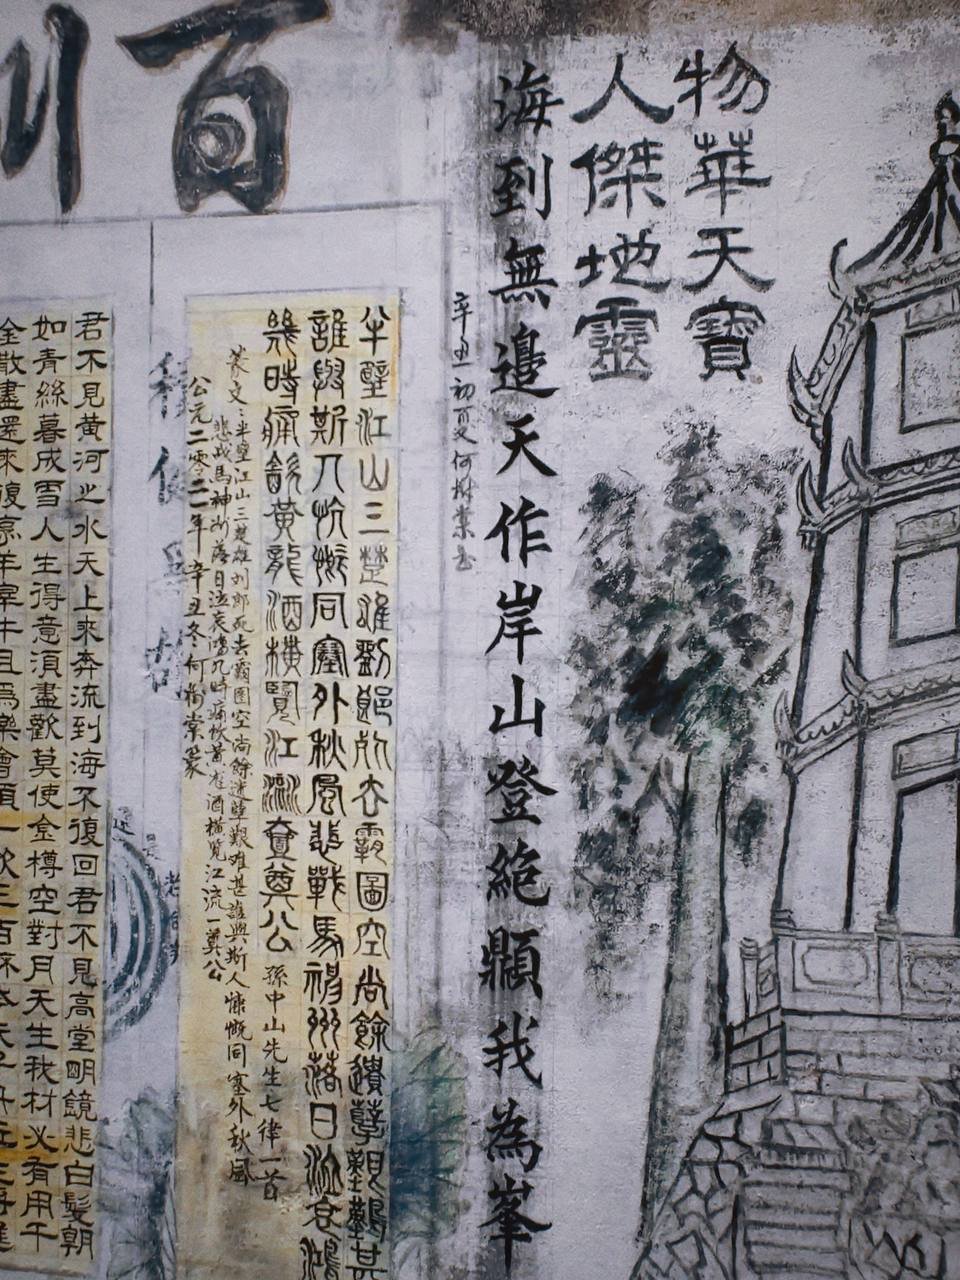 物華天寶
人傑地靈
海到無邊天作岸山登絕顛我為峯
辛丑初夏何樹棠書
半壁江山三楚雄劉郎死去霸圖空尚餘遺孽艱難甚
誰與斯人慷慨同塞外秋風悲戰馬神州落日泣哀鴻
幾時痛飲黃龍酒橫覽江流壹奠公 孫中山先生七律一首
篆文：半壁江山三楚雄刘郎死去霸图空尚餘遗孽艰难甚誰與斯人慷慨同塞外秋風
悲战馬神州落日泣哀鴻几時痛饮黄龙酒横览江流一奠公
公元二零二一年辛丑冬何樹棠篆
百
君不見黃河之水天上來奔流到海不復回君不見高堂明鏡悲白髮朝
如青絲暮成雪人生得意須盡歡莫使金樽空對月天生我材必有用千
金散盡還來復烹羊宰牛且為樂會須一飲三百杯